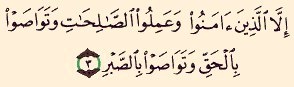 إِلَّا الَّذِينَ ءَامَنُوا۟ وَعَمِلُوا۟ الصَّـٰلِحَـٰتِ وَتَوَاصَوْا۟
بِالْحَقِّ وَتَوَاصَوْا۟ بِالصَّبْرِ ٣